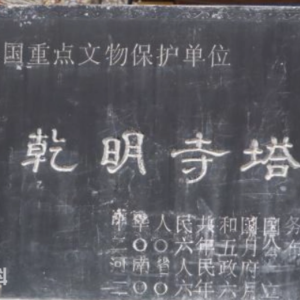 国重点文物保护单位
乾明寺塔
人民共和國
二〇〇六年五月
河南省人民政府立